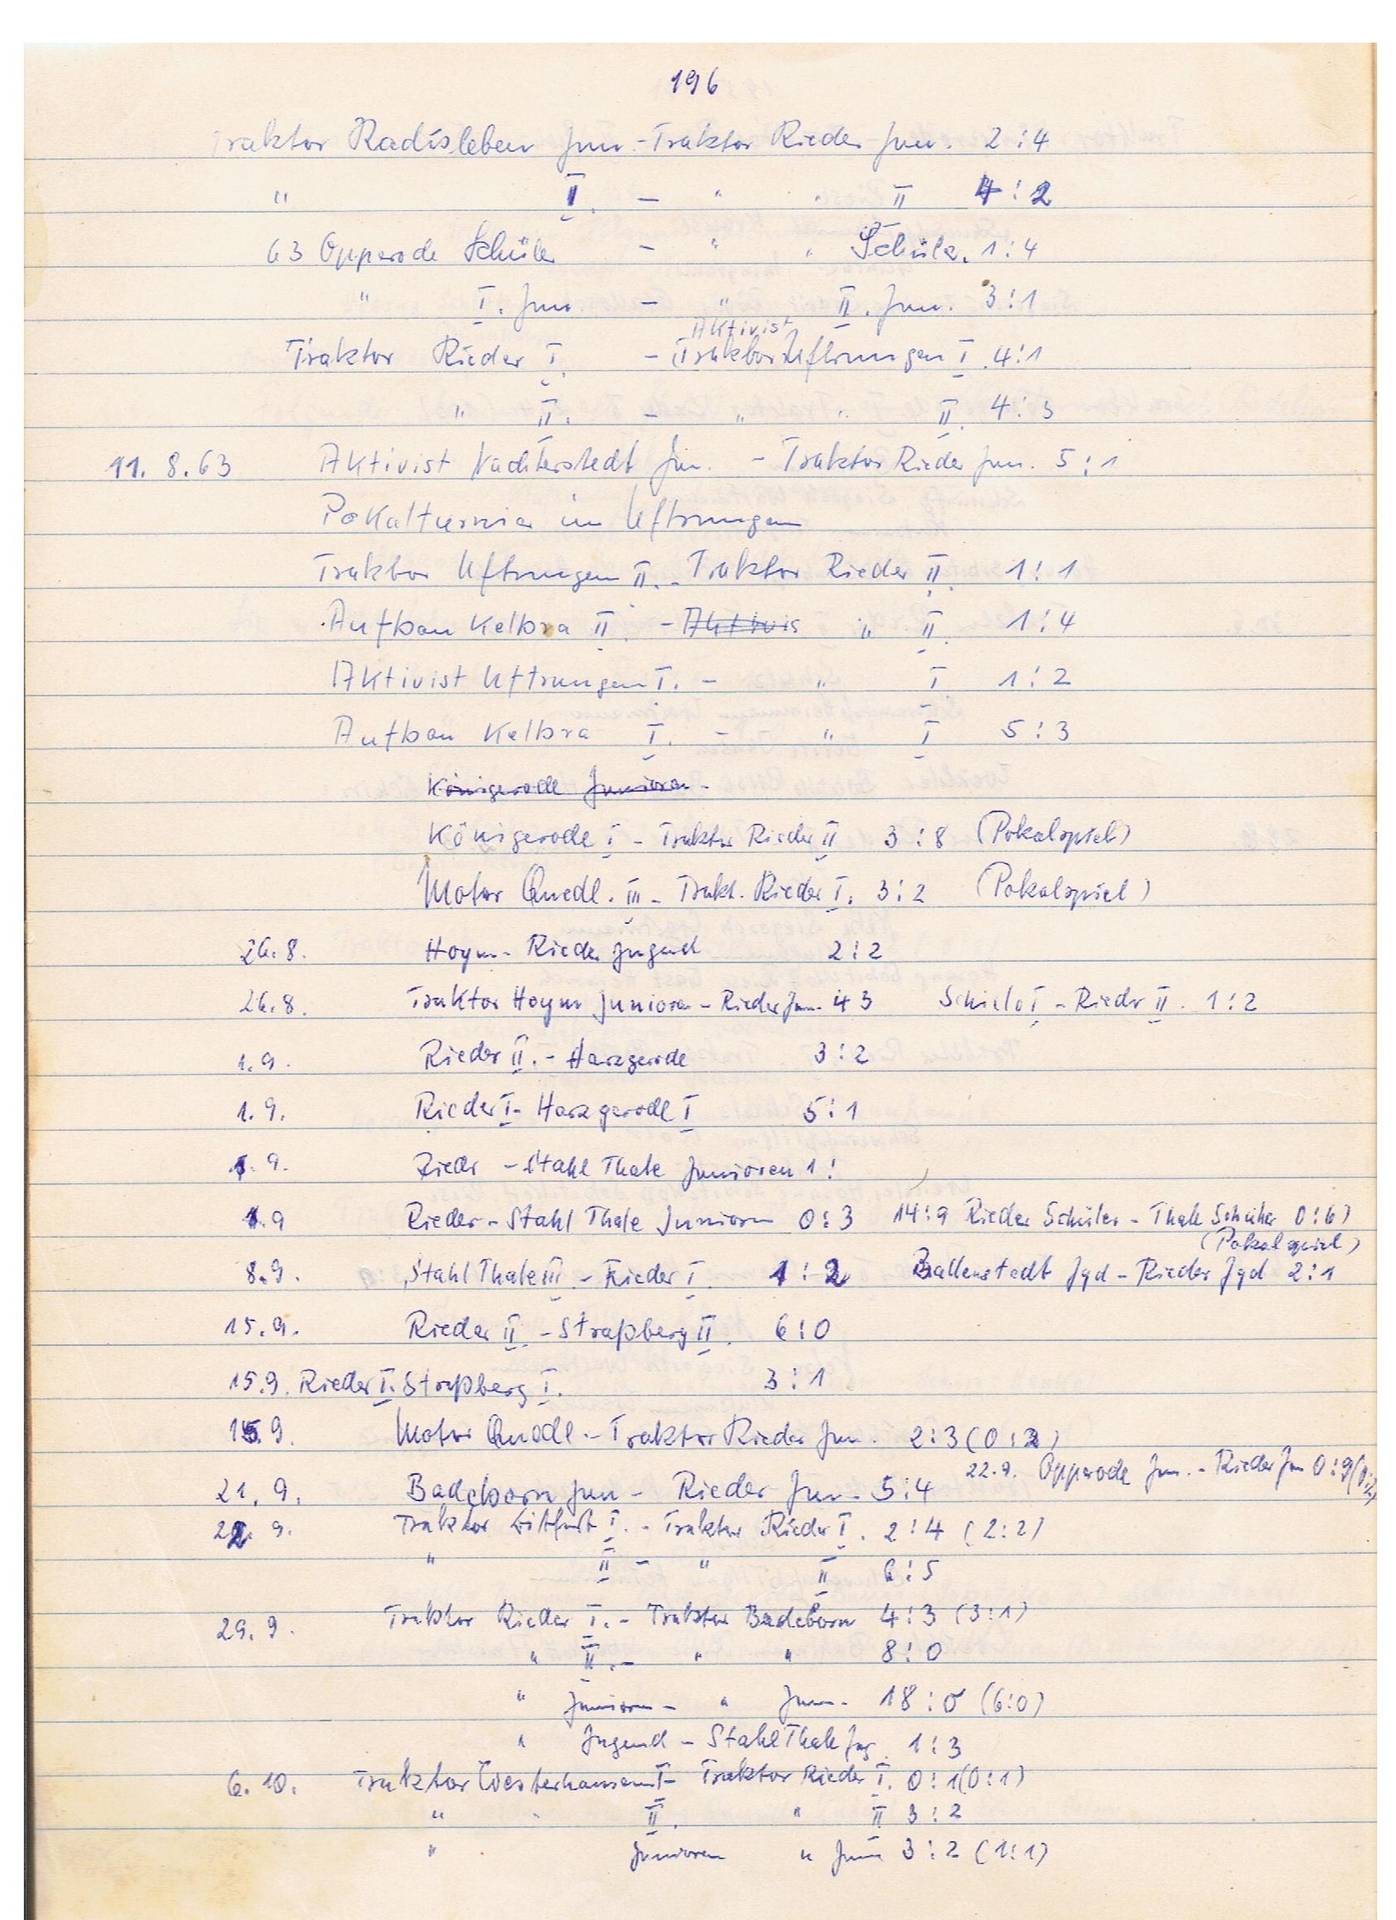 196
Traktor Radisleben Jun. - Traktor Rieder Jun. 2:4
" I. - " " II 4:2
63 Opperode Schüler - " " Schüler. 1:4
" I. Jun. - " II. Jun. 3:1
Aktivist
Traktor Rieder I. - Traktor Uftrungen I. 4:1
" II. - " " II. 4:3
11. 8. 63 Aktivist Nachterstedt Jun. - Traktor Rieder Jun. 5:1
Pokalturnier in Uftrungen
Traktor Uftrungen II. - Traktor Rieder II. 1:1
Aufbau Kelbra II. - Aktivis " II. 1:4
Aktivist Uftrungen I. - " I 1:2
Aufbau Kelbra I. - " I 5:3
Königerode Junioren -
Königerode I - Traktor Rieder II 3:8 (Pokalspiel)
Motor Quedl. III - Trakt. Rieder I. 3:2 (Pokalspiel)
26. 8. Hoym - Rieder Jugend 2:2
26. 8. Traktor Hoym Junioren - Rieder Jun. 4 3 Schielo I - Rieder II. 1:2
1. 9. Rieder II. - Harzgerode 3:2
1. 9. Rieder I - Harzgerode I 5:1
1. 9. Rieder - Stahl Thale Junioren 1:
1. 9 Rieder - Stahl Thale Junioren 0:3 14:9 Rieder Schüler - Thale Schüler 0:6)
(Pokalspiel)
8. 9. Stahl Thale III - Rieder I. 1:2 Ballenstedt Jgd - Rieder Jgd 2:1
15. 9. Rieder II - Straßberg II. 6:0
15. 9. Rieder I. Straßberg I. 3:1
15. 9. Motor Quedl. - Traktor Rieder Jun. 2:3 (0:2)
22. 9. Opperode Jun. - Rieder Jun 0:9
21. 9. Badeborn Jun - Rieder Jun. 5:4
22. 9. Traktor Ditfurt I. - Traktor Rieder I. 2:4 (2:2)
" II - " II 6:5
29. 9. Traktor Rieder I. - Traktor Badeborn 4:3 (3:1)
" II. - " " 8:0
" Junioren - " Jun. 18:0 (6:0)
" Jugend - Stahl Thale Jug. 1:3
6. 10. Traktor Westerhausen I - Traktor Rieder I. 0:1 (0:1)
" " II. " II 3:2
" Junioren " Jun 3:2 (1:1)